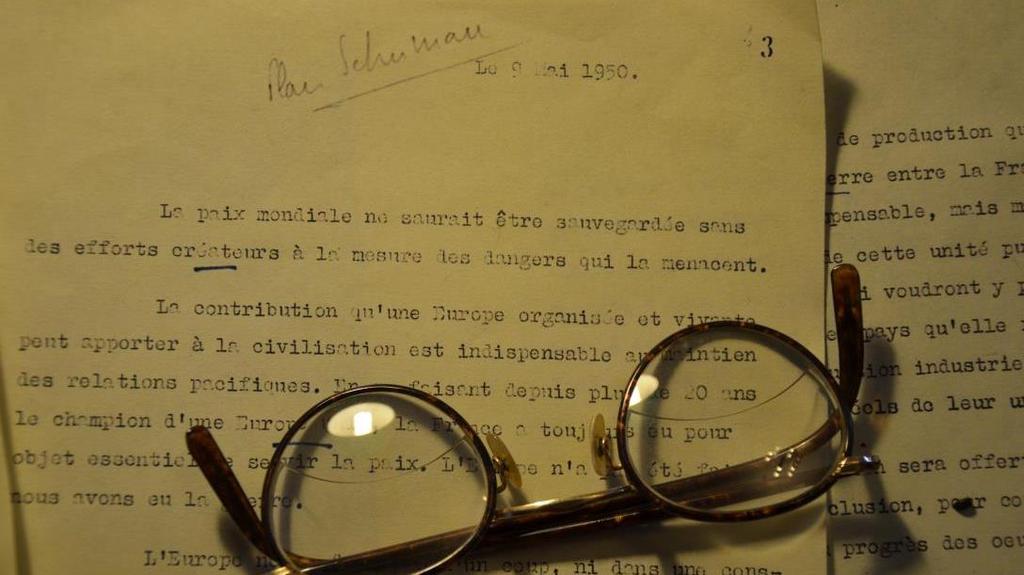 Plan Schuman
3
Le 9 Mai 1950.
La paix mondiale ne saurait être sauvegardée sans
des efforts créateurs à la mesure des dangers qui la menacent.
La contribution qu'une Europe organisée et vivante
peut apporter à la civilisation est indispensable au maintien
des relations pacifiques. En faisant depuis plus de 20 ans
le champion d'une Europe la France a toujours eu pour
objet essentiel de servir la paix. L'Europe n'a été
nous avons eu la guerre.
L'Europe d'un coup, ni dans une cons-
de production qu
erre entre la Fra
pensable, mais m
de cette unité pu
i voudront y p
pays qu'elle
industrie
de leur un
sera offer
clusion, pour co
progrès des oeu